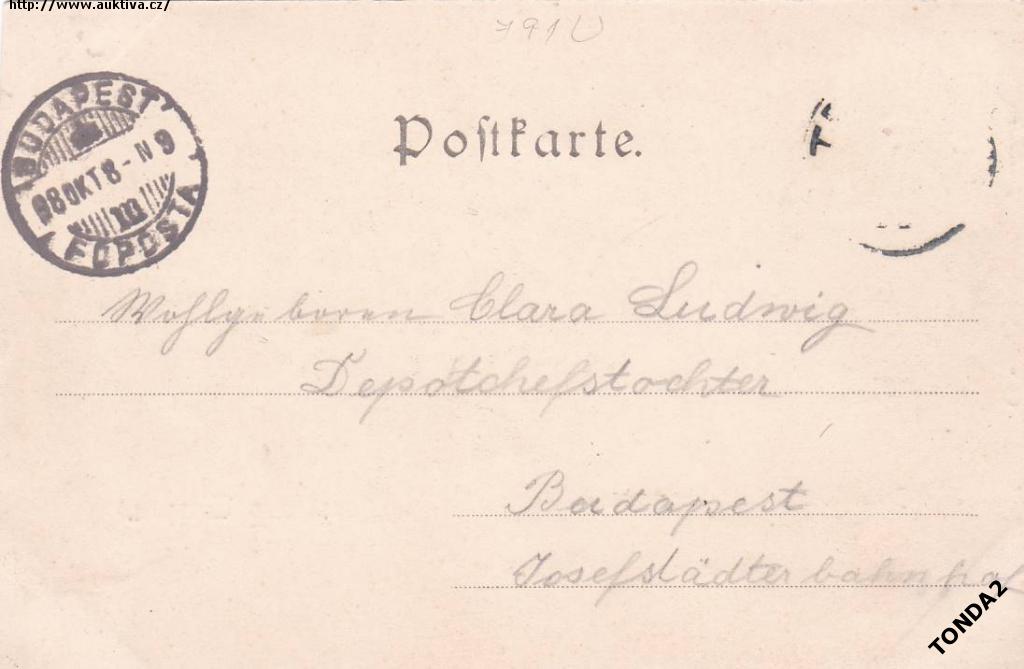 http://www.auktiva.cz/
791U
BUDAPEST
98 OKT 8-N 9
III
FŐPOSTA
Postkarte.
Wohlgeboren Clara Ludwig
Depôtchefstochter
Budapest
Josefstädterbahnhof
TONDA2